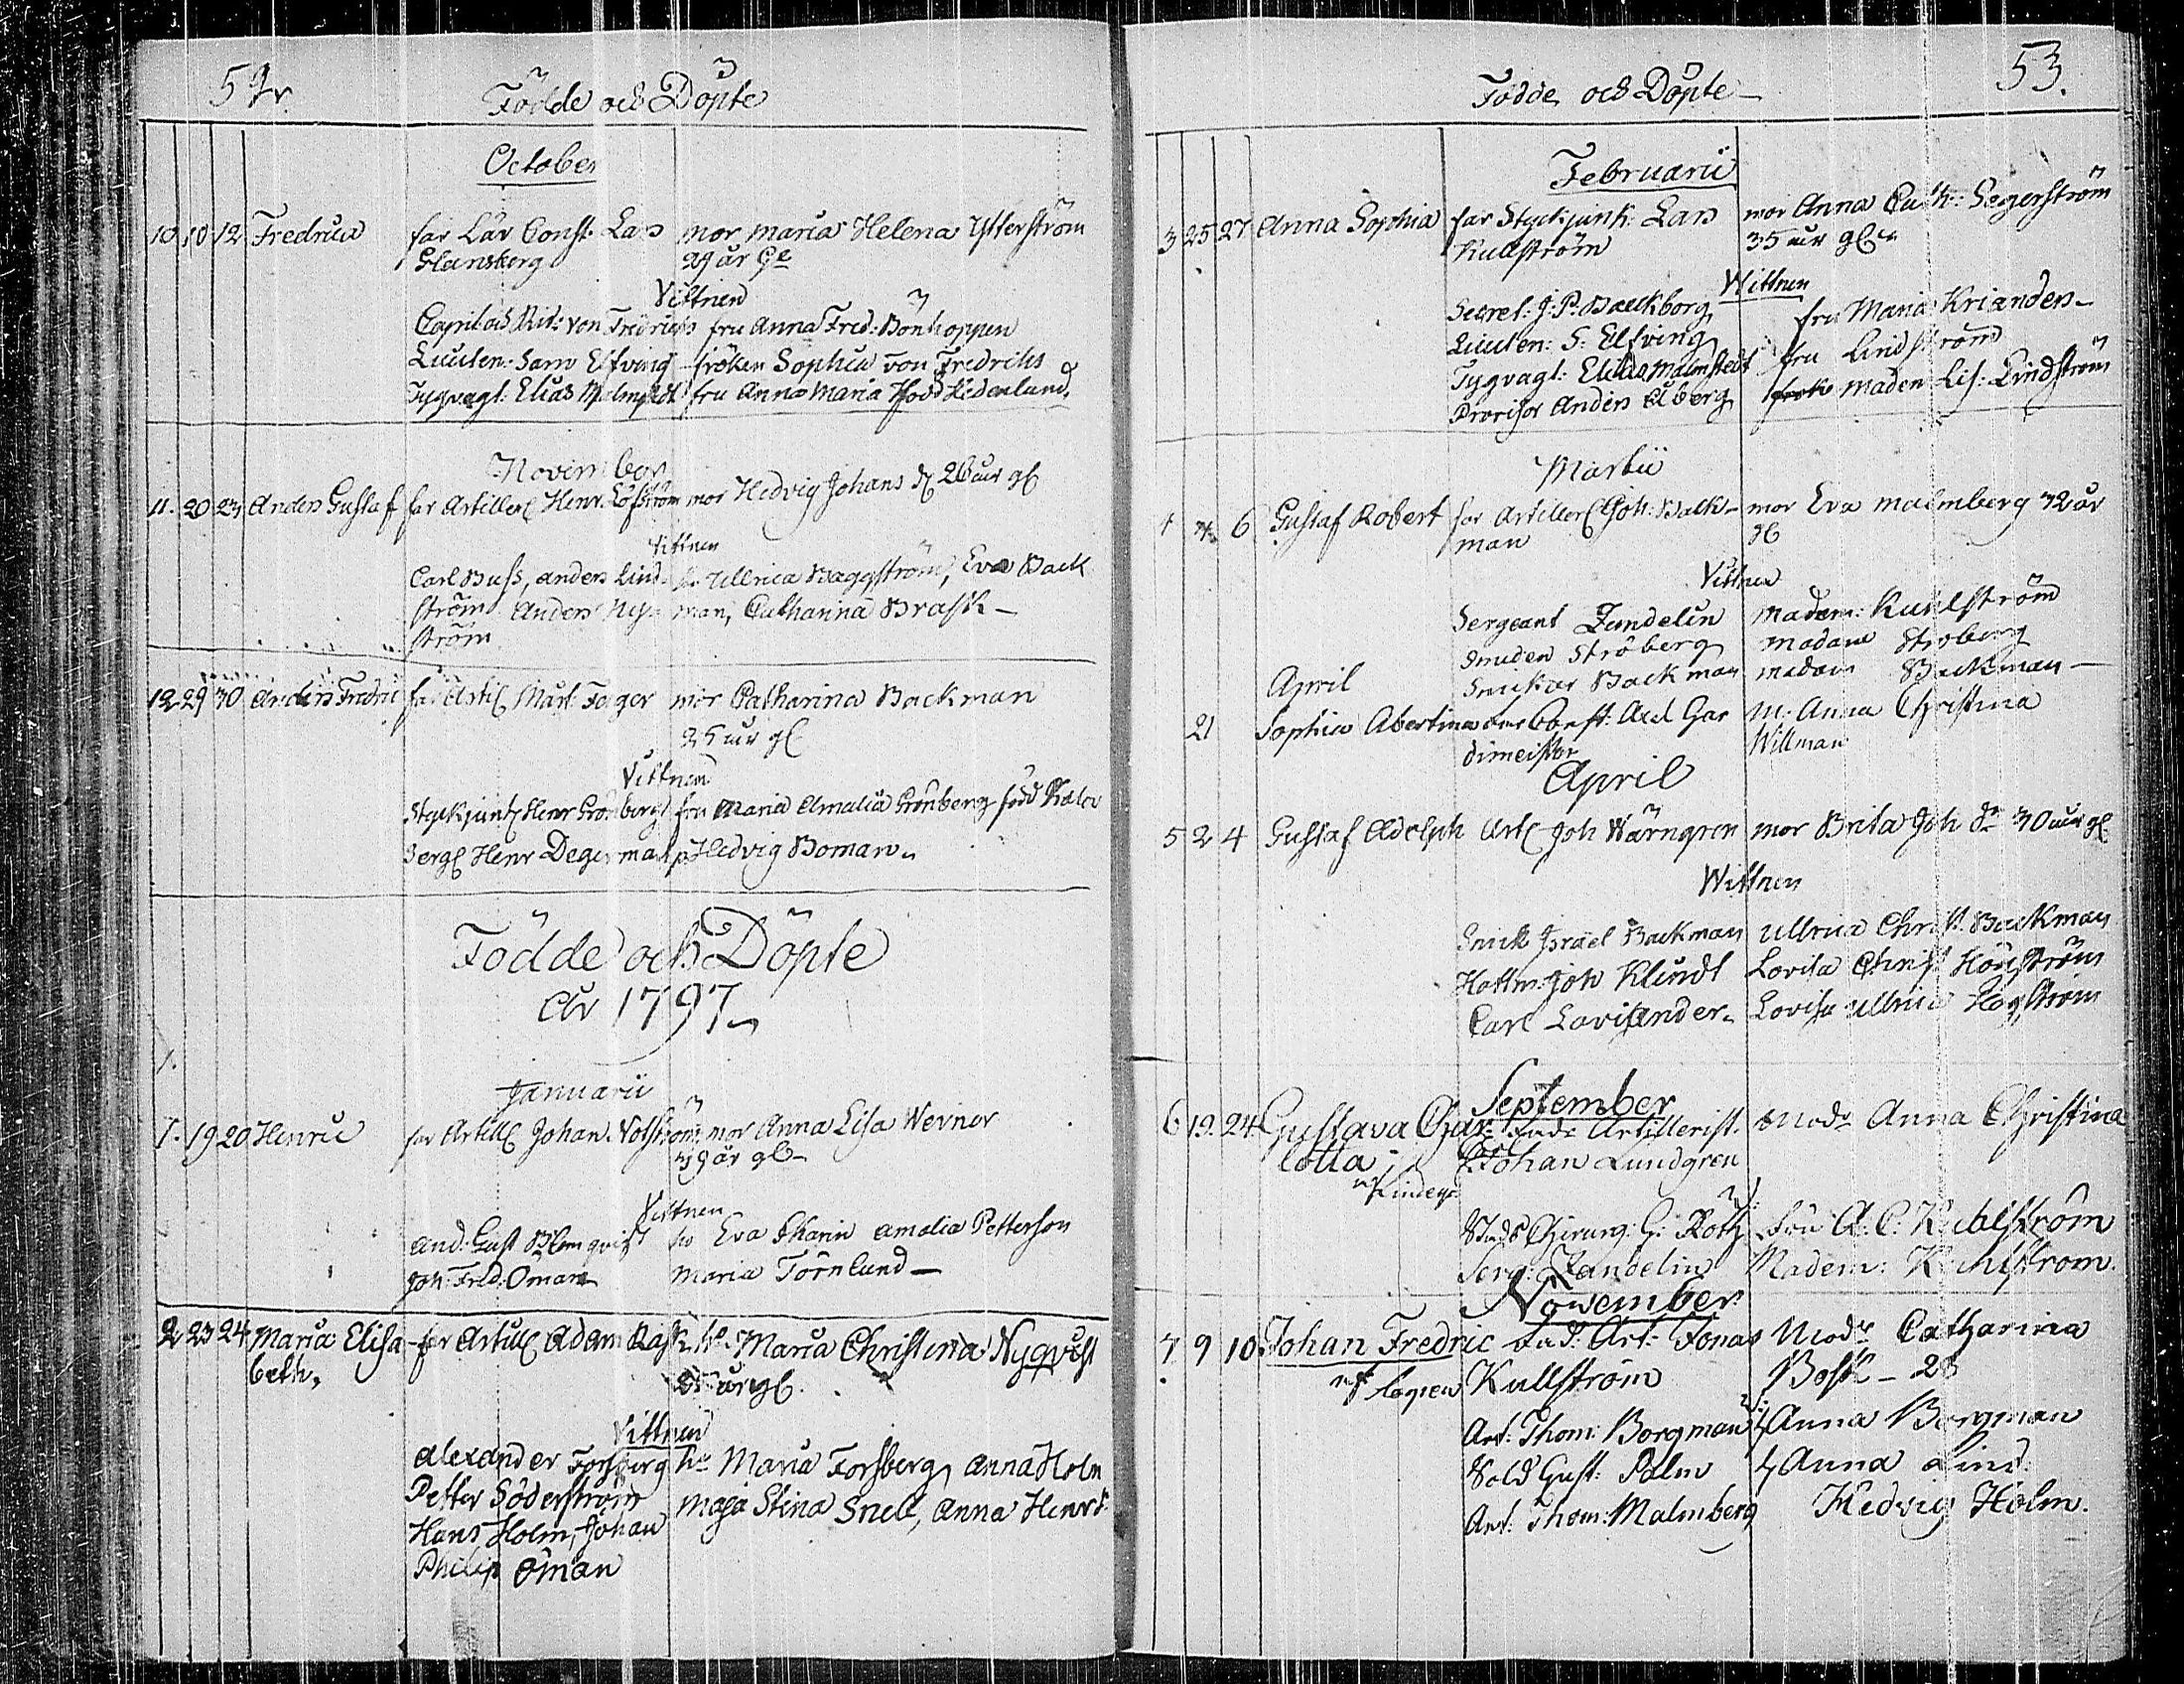 52.
Födde och Döpte
October
10 10 12 Fredrica far Lär Const. Lars mor Maria Helena Ytterström
Glansberg 29 år Gl
Vittnen
Capit och Rid: von Fredrichs fru Anna Fred: Bonhoppen
Lieuten. Sam Elfving fröken Sophia von Fredrichs
Tygvagt: Elias Malmstedt fru Anna Maria född Kidenlund.
November
11. 20 23 Anders Gustaf far Artiller Henr. Löfström mor Hedvig Johans dr 26 år gl
Vittnen
Carl Buss, Anders Lind- Ullrica Baggström, Eva Back
ström Anders Ny- man, Catharina Brask-
ström
12 29 30 Anders Fredric far Artil Mårt. Fager mor Catharina Backman
35 år gl
Vittnen
Styckjunk Henr Grönberg fru Maria Amalia Grönberg född
Serg Henr Degerman Hedvig Boman
Födde och Döpte
År 1797
1.
Januarii
1. 19 20 Henric far Artill Johan mor Anna Lisa Wernor
39 år gl-
Vittnen
And: Gust Blomqvist Eva Charin Amalia Petterson
Joh. Fred: Öman Maria Törnlund-
2 23 24 Maria Elisa- far Artill Adam Rask Maria Christina Nyqvist
beth. 25 år gl.
Vittnen
Alexander Forsberg Maria Forsberg, Anna Holm
Petter Söderström Maja Stina Snell, Anna Henr dr
Hans Holm, Johan
Philip Öman
53.
Födde och Döpte
Februarii
3 25 27 Anna Sophia far Styckjunk: Lars mor Anna Cath: Segerström
Kullström 35 år gl
Wittnen
Secret: J: P: Backborg fru Maria Krianden-
Lieuten: S: Elfving fru Lindström
Tygvagt: Elias Malmstedt Madem Lis: Lindström
Provisor Anders Alberg
Martii
4 6 Gustaf Robert far Artiller Joh: Back- mor Eva Malmberg 32 år
man gl
Vittnen
Sergeant Zandelin Madam: Kuhlström
Smeden Ströberg Madam Ströberg
April Snickar Backman Madam Backman-
21 Sophia Abertina far Const: Axel Gar M: Anna Christina
dimeister Willman
April
5 2 4 Gustaf Adolph Art Joh Wärngren mor Brita Joh Dr 30 år gl
Wittnen
Snick Israel Backman Ullrica Christ. Backman
Hottm: Joh Klundt Lovisa Christ Högström
Carl Lovisander Lovisa Ullrica Högström
September
6 19. 24 Gustava Char- Fad: Artillerist. Modr Anna Christina
lotta Johan Lundgren
Stads Chirurg: G: Roth Fru A: C: Kuhlström
Serg: Zandelin Madem: Kuhlström.
November
7 9 10 Johan Fredric Fad: Art: Jonas Modr Catharina
Kullström Bosk - 28
Art: Thom: Borgman Anna Borgman
Sold Gust: Palm Anna Lind
Art: Thom: Malmberg Hedvig Holm.